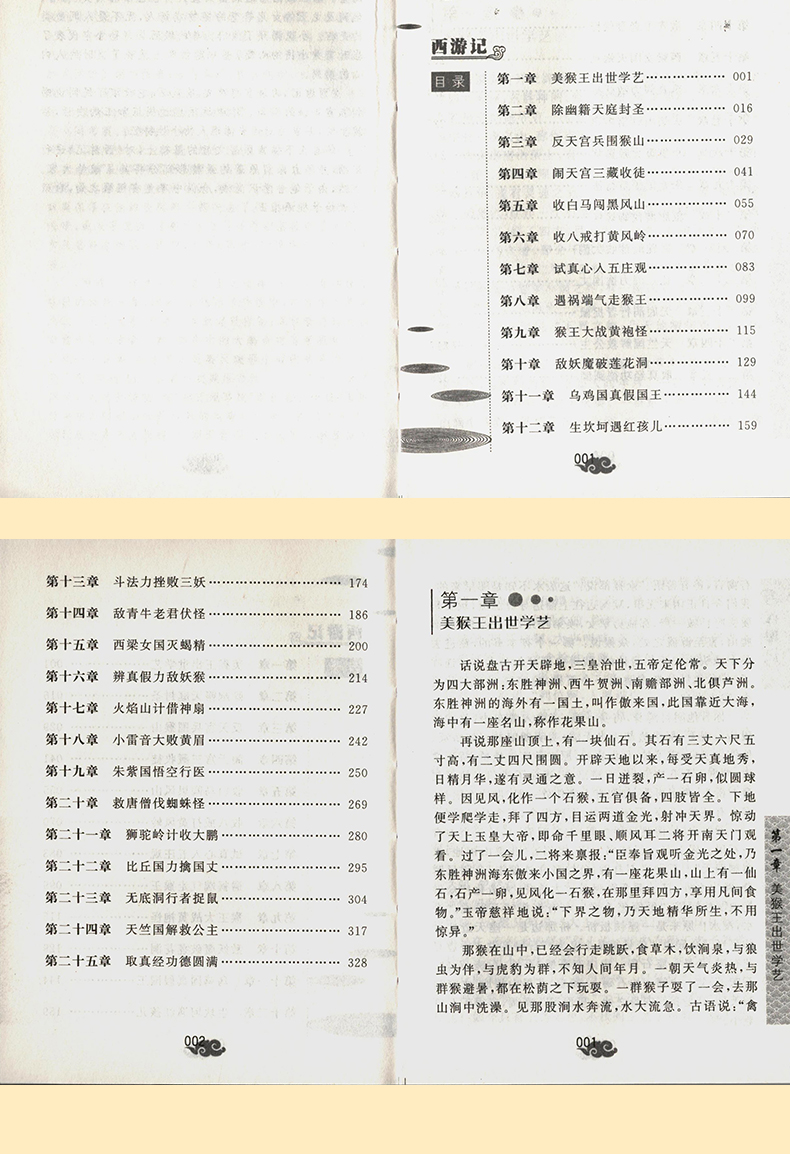 西游记
目录
第一章 美猴王出世学艺………………001
第二章 除幽籍天庭封圣………………016
第三章 反天宫兵围猴山………………029
第四章 闹天宫三藏收徒………………041
第五章 收白马闯黑风山………………055
第六章 收八戒打黄风岭………………070
第七章 试真心人五庄观………………083
第八章 遇祸端气走猴王………………099
第九章 猴王大战黄袍怪………………115
第十章 敌妖魔破莲花洞………………129
第十一章 乌鸡国真假国王……………144
第十二章 生坎坷遇红孩儿……………159
001
第十三章 斗法力挫败三妖……………………………174
第十四章 敌青牛老君伏怪……………………………186
第十五章 西梁女国灭蝎精……………………………200
第十六章 辨真假力敌妖猴……………………………214
第十七章 火焰山计借神扇……………………………227
第十八章 小雷音大败黄眉……………………………242
第十九章 朱紫国悟空行医……………………………250
第二十章 救唐僧伐蜘蛛怪……………………………269
第二十一章 狮驼岭计收大鹏…………………………280
第二十二章 比丘国力擒国丈…………………………295
第二十三章 无底洞行者捉鼠…………………………304
第二十四章 天竺国解救公主…………………………317
第二十五章 取真经功德圆满…………………………328
002
第一章
美猴王出世学艺
话说盘古开天辟地,三皇治世,五帝定伦常。天下分
为四大部洲:东胜神洲、西牛贺洲、南赡部洲、北俱芦洲。
东胜神洲的海外有一国土,叫作傲来国,此国靠近大海,
海中有一座名山,称作花果山。
再说那座山顶上,有一块仙石。其石有三丈六尺五
寸高,有二丈四尺围圆。开辟天地以来,每受天真地秀,
日精月华,遂有灵通之意。一日迸裂,产一石卵,似圆球
样。因见风,化作一个石猴,五官俱备,四肢皆全。下地
便学爬学走,拜了四方,目运两道金光,射冲天界。惊动
了天上玉皇大帝,即命千里眼、顺风耳二将开南天门观
看。过了一会儿,二将来禀报:“臣奉旨观听金光之处,乃
东胜神洲海东傲来小国之界,有一座花果山,山上有一仙
石,石产一卵,见风化一石猴,在那里拜四方,享用凡间食
物。”玉帝慈祥地说:“下界之物,乃天地精华所生,不用
惊异。”
那猴在山中,已经会行走跳跃,食草木,饮涧泉,与狼
虫为伴,与虎豹为群,不知人间年月。一朝天气炎热,与
群猴避暑,都在松荫之下玩耍。一群猴子耍了一会,去那
山涧中洗澡。见那股涧水奔流,水大流急。古语说:“禽
第一章 美猴王出世学艺
001